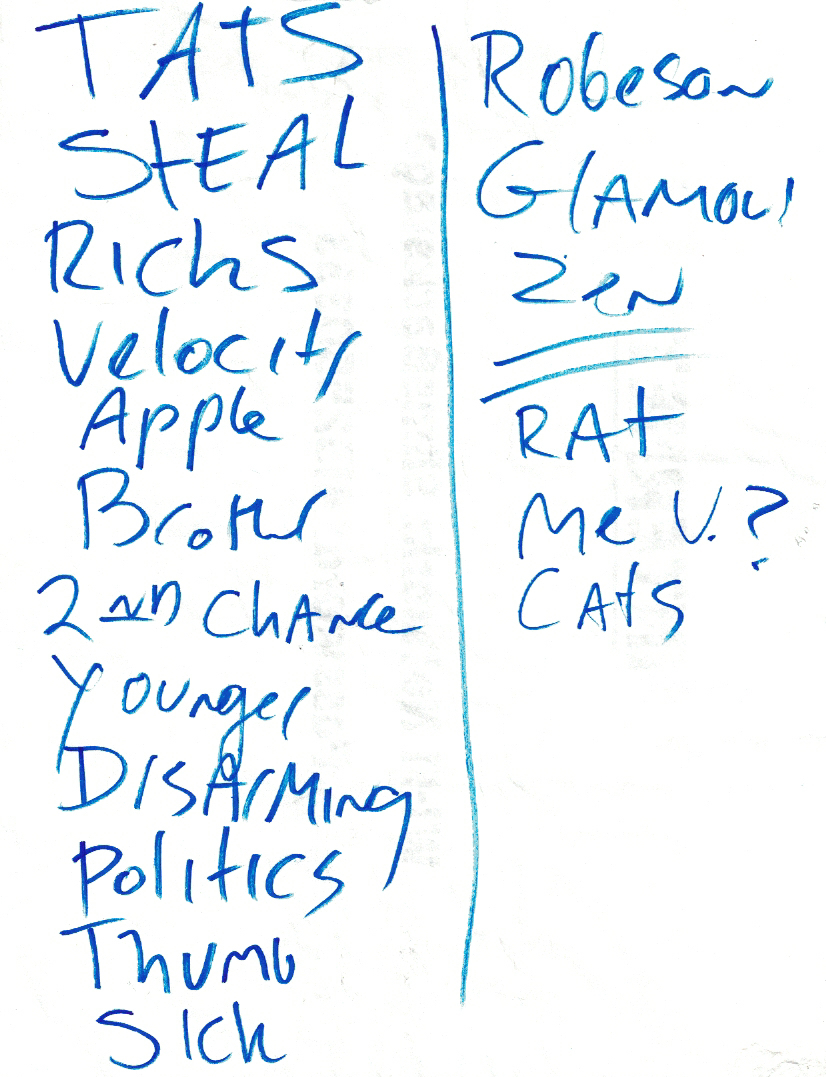 TATS
STEAL
Richs
Velocity
Apple
Brother
2ND Chance
Younger
Disarming
Politics
Thumb
Sick
Robeson
Glamour
Zen
RAt
Me V.?
CAts